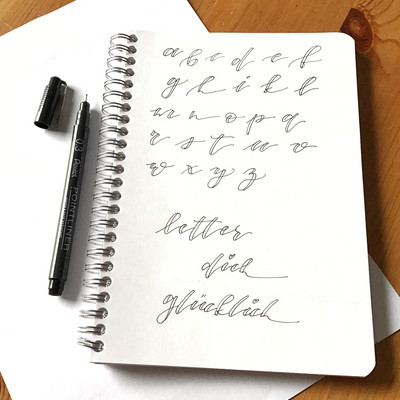 a b c d e f
g h i k l
m n o p q
r s t u v
w x y z
letter
dich
glücklich
0.3 Pentel POINTLINER